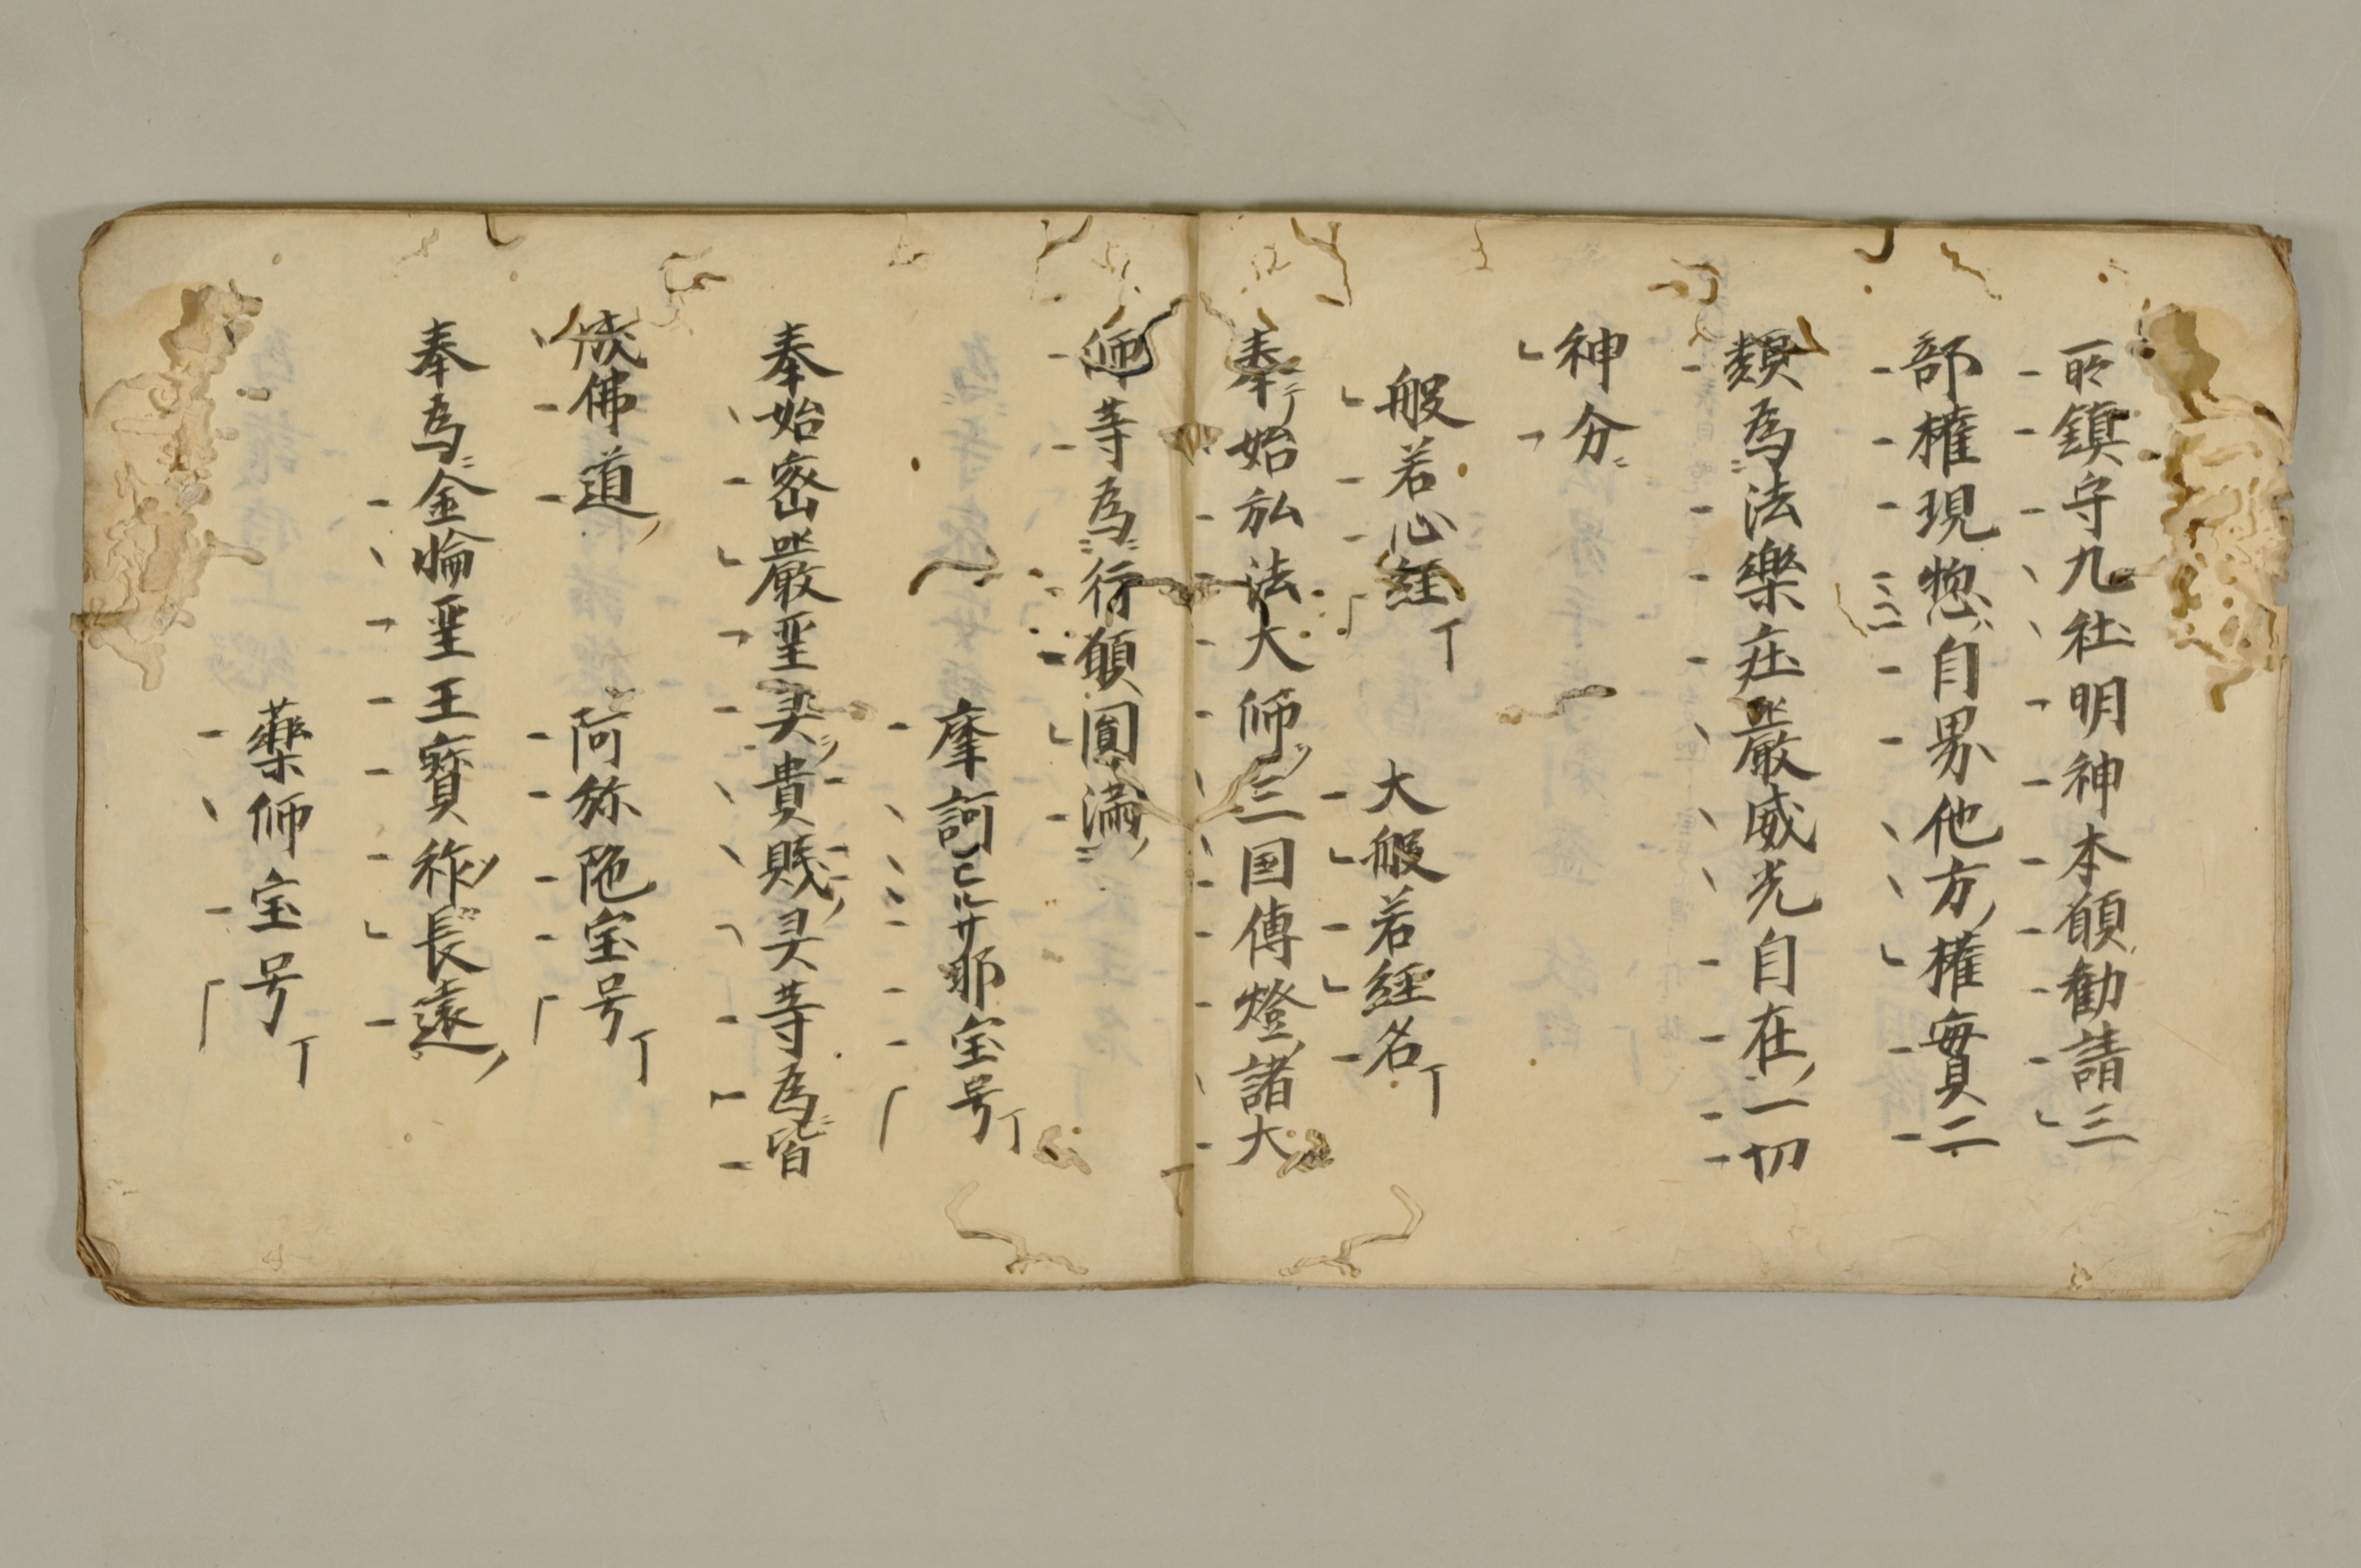 所鎮守九社明神本願勸請三
部權現惣自界他方權實二
類為法樂莊嚴威光自在一切
神分
般若心経丁　大般若経名丁
奉始弘法大師三国傳燈諸大
師等為行願圓滿
摩訶毘盧遮那宝号丁
奉始密嚴聖灵貴賤灵等為皆
成佛道　阿弥陀宝号丁
奉為金輪聖王寶祚長遠
藥師宝号丁